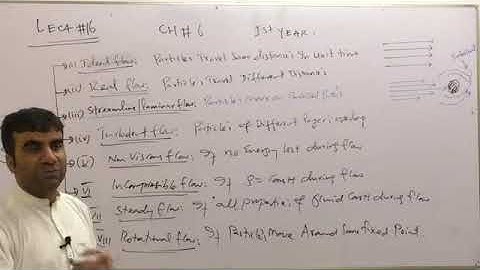 LECT #16 CH # 6 1st YEAR.
(i) Ideal flow: Particles Travel Same distance In Unit time
(ii) Real flow: Particles Travel Different Distances
(iii) Streamline/laminar flow: Particles move on Parallel
(iv) Turbulent flow: Particles of Different layers
(v) Non Viscous flow: If no Energy lost during flow
VI Incompressible flow: If ρ = const during flow
VII Steady flow: If all properties of fluid const during flow
VIII Rotational flow: If Particles Move Around Some fixed Point.